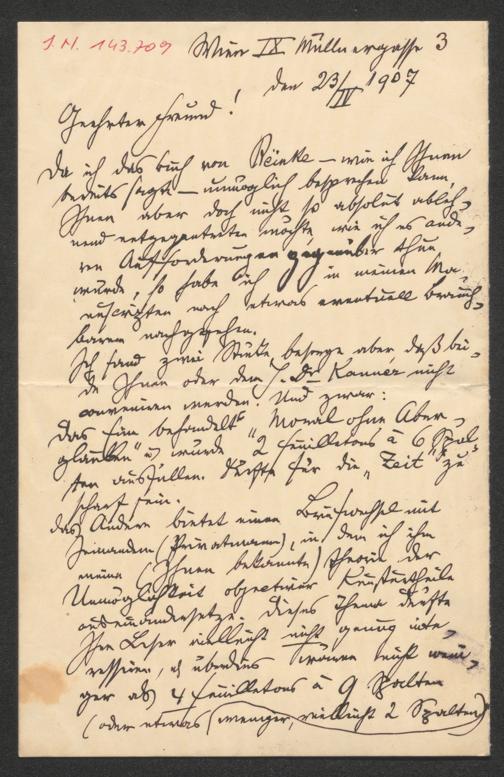 J.N. 143.709
Wien IX Müllnergasse 3
den 23/IV 1907
Geehrter Freund!
Da ich das Buch von Reinke – wie ich Ihnen
bereits sagte – unmöglich besprechen kann,
Ihnen aber doch nicht so absolut ableh-
nend entgegentreten möchte wie ich es ande-
ren Aufforderungen gegenüber thun
würde, so habe ich in meinen Ma-
nuscripten nach etwas eventuell brauch-
baren nachgesehen.
Ich fand zwei Stücke, besorge aber, daß bei-
de Ihnen oder dem H. Dr Kanner nicht
conveniren werden. Und zwar:
Das Eine behandelt "Moral ohne Aber-
glauben" u würde 2 Feuilletons à 6 Spal-
ten ausfüllen. Dürfte für die „Zeit" zu
scharf sein.
das Andere bietet einen Briefwechsel mit
Jemandem (Privatmann), in dem ich ihm
meine (Ihnen bekannte) Theorie der
Unmöglichkeit objectiver Kunsturtheile
auseinandersetze. Dieses Thema dürfte
Ihre Leser vielleicht nicht genug inte-
ressiren, u überdies wären nicht weni-
ger als 4 Feuilletons à 9 Spalten
(oder etwas weniger, vielleicht 2 Spalten)